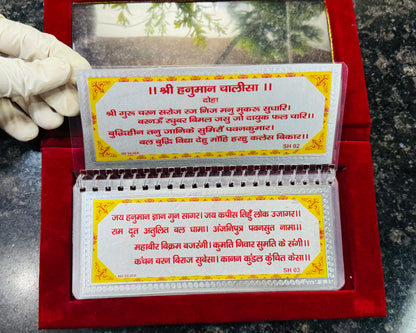 ।। श्री हनुमान चालीसा ।।
दोहा
श्री गुरू चरन सरोज रज निज मनु मुकरू सुधारि।
बरनऊँ रघुबर बिमल जसु जो दायकु फल चारि।।
बुद्धिहीन तनु जानिके सुमिरौं पवनकुमार।
बल बुद्धि विद्या देहु मोंहि हरहु कलेस बिकार।।
SH 02
जय हनुमान ज्ञान गुन सागर। जय कपीस तिहुँ लोक उजागर।।
राम दूत अतुलित बल धामा। अंजनिपुत्र पवनसुत नामा।।
महाबीर बिक्रम बजरंगी। कुमति निवार सुमति के संगी।।
कंचन बरन बिराज सुबेसा। कानन कुंडल कुंचित केसा।।
SH 03